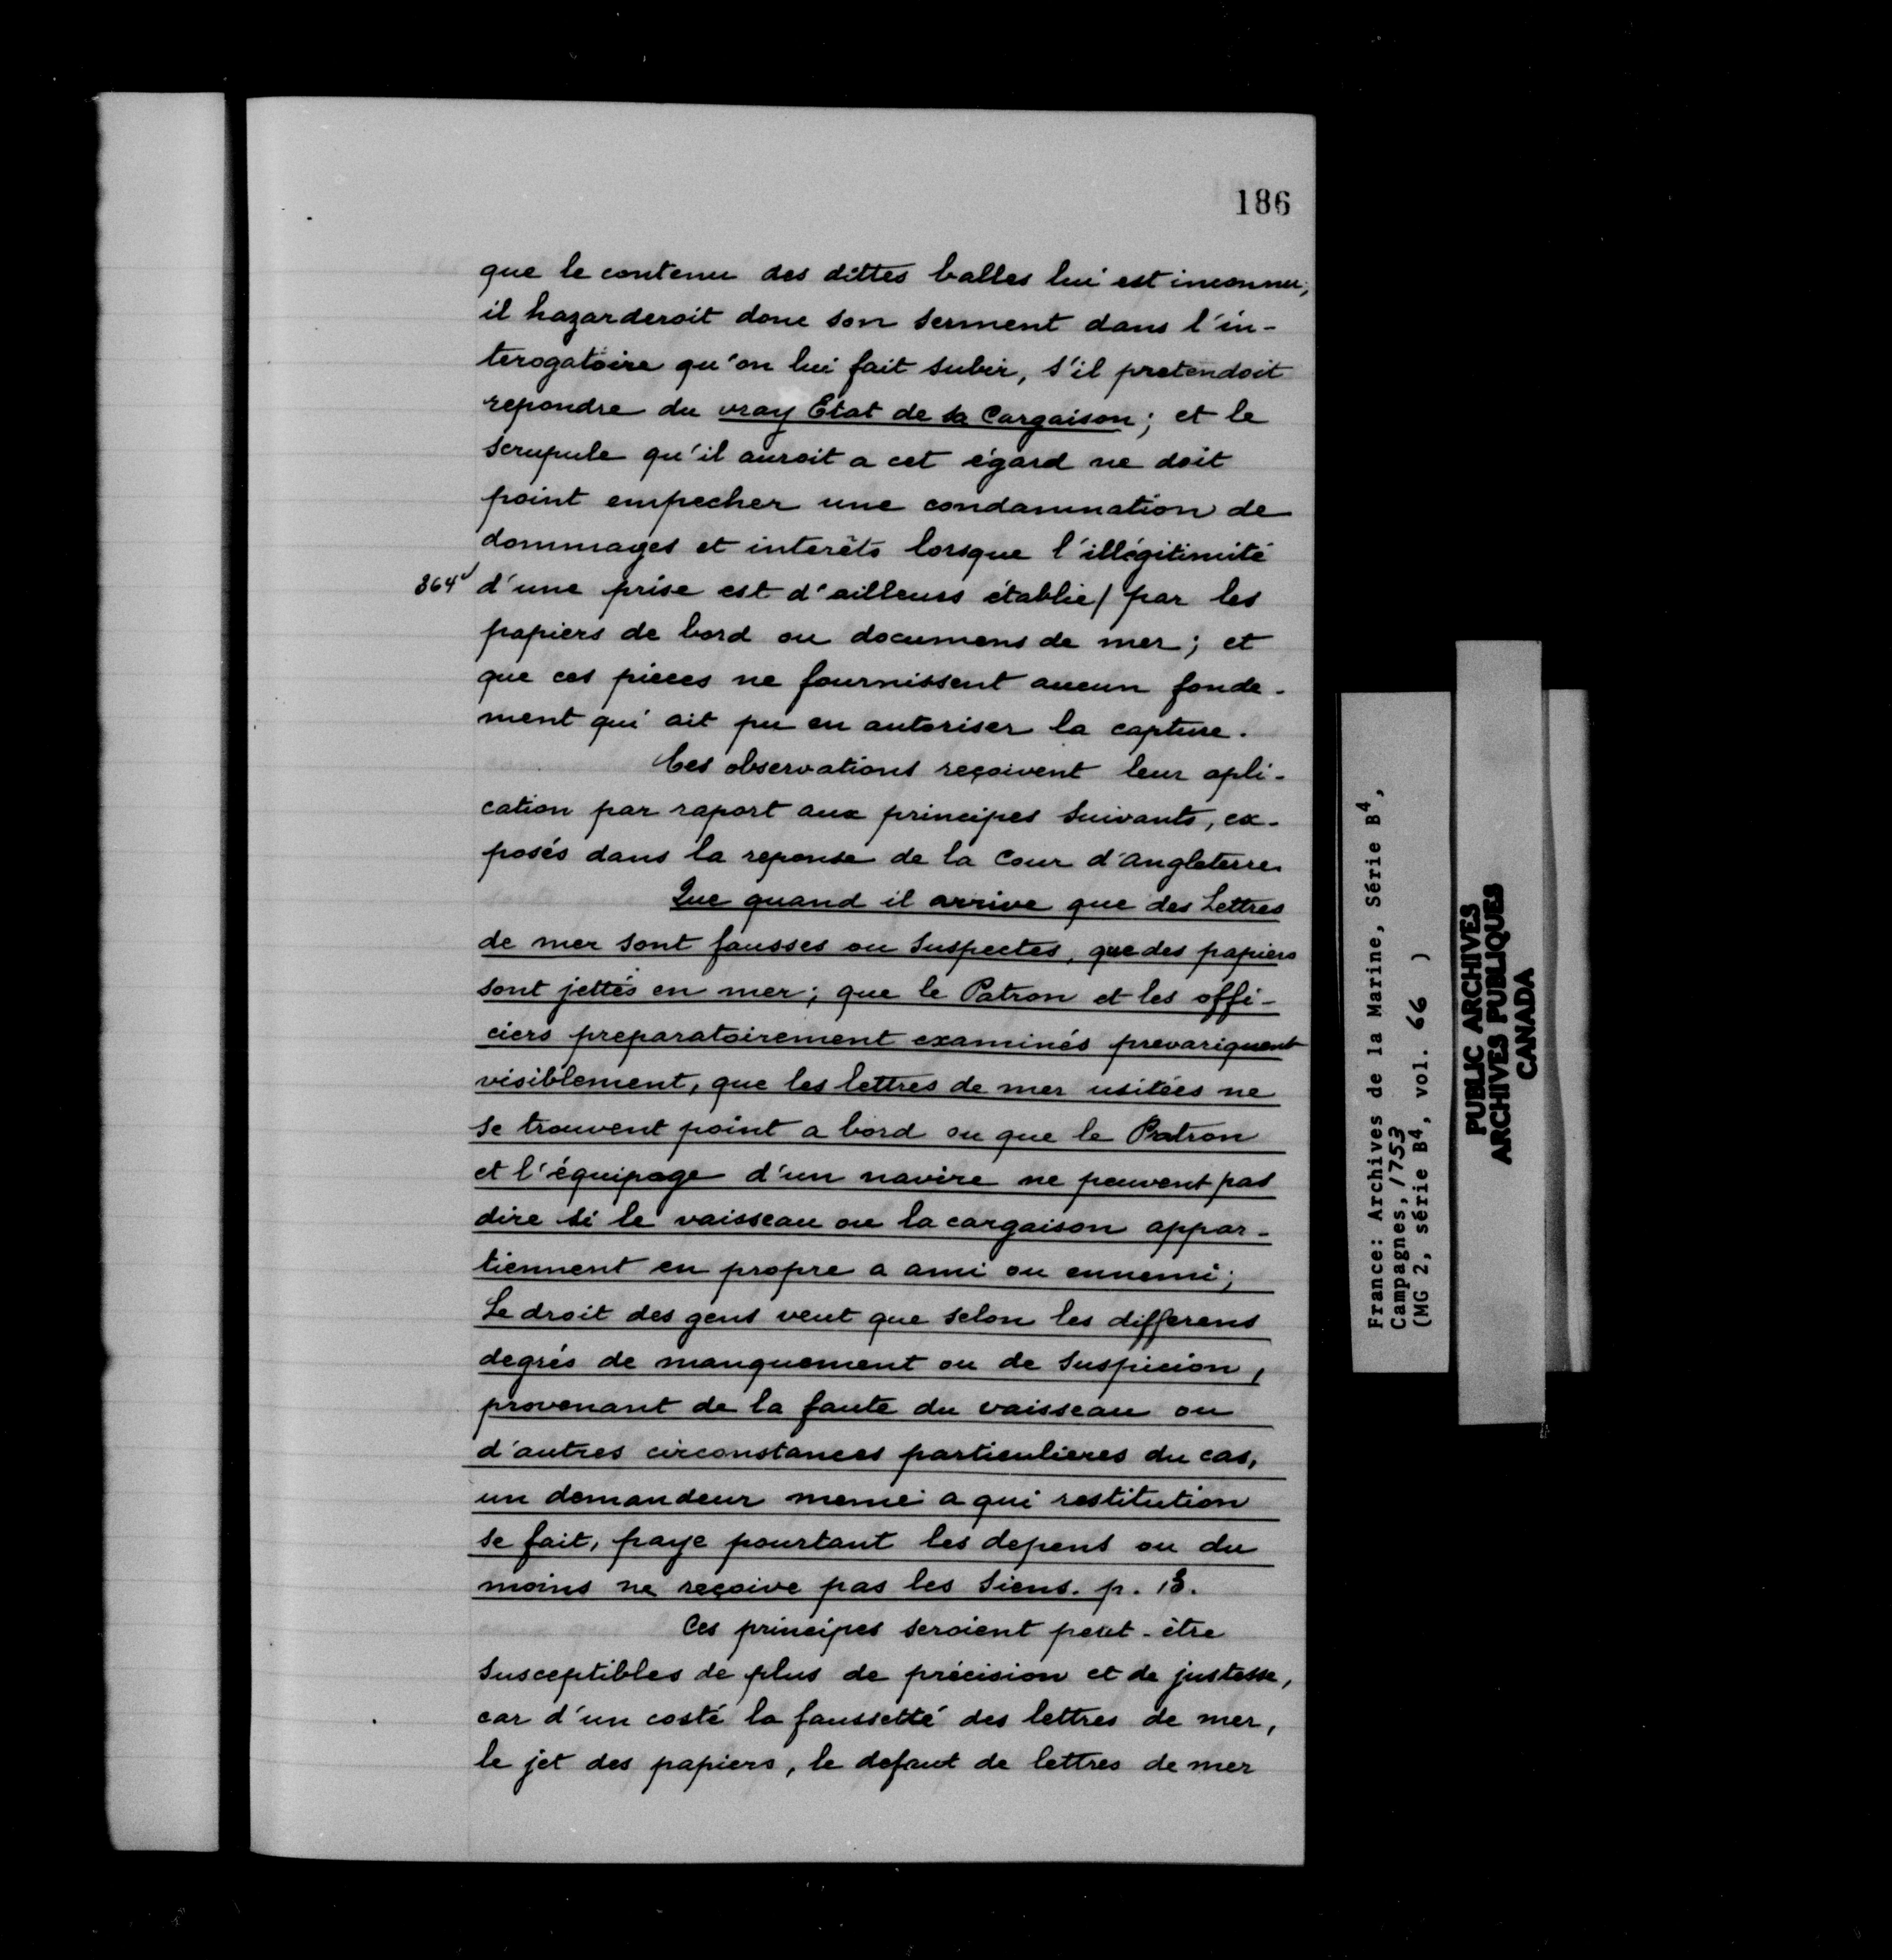 186
que le contenu des dittes balles lui est inconnu;
il hazarderoit donc son serment dans l'in-
terogatoire qu'on lui fait subir, s'il pretendoit
repondre du vray Etat de sa Cargaison; et le
scrupule qu'il auroit a cet égard ne doit
point empecher une condamnation de
dommages et interêts lorsque l'illégitimité
364v d'une prise est d'ailleurs établie/ par les
papiers de bord ou documens de mer; et
que ces pieces ne fournissent aucun fonde-
ment qui ait pu en autoriser la capture.
Ces observations reçoivent leur apli-
cation par raport aux principes suivants, ex-
posés dans la reponse de la Cour d'angleterre
Que quand il arrive que des Lettres
de mer sont fausses ou suspectes, que des papiers
sont jettés en mer; que le Patron et les offi-
ciers preparatoirement examinés prevariquent
visiblement, que les lettres de mer usitées ne
se trouvent point a bord ou que le Patron
et l'équipage d'un navire ne peuvent pas
dire si le vaisseau ou la cargaison appar-
tiennent en propre a ami ou ennemi;
Le droit des gens veut que selon les differens
degrés de manquement ou de suspicion,
provenant de la faute du vaisseau ou
d'autres circonstances particulieres du cas,
un demandeur meme a qui restitution
se fait, paye pourtant les depens ou du
moins ne reçoive pas les siens. p. 13.
Ces principes seroient peut-être
susceptibles de plus de précision et de justesse,
car d'un costé la faussetté des lettres de mer,
le jet des papiers, le defaut de lettres de mer
France: Archives de la Marine, Série B4,
Campagnes, 1753
(MG 2, série B4, vol. 66 )
PUBLIC ARCHIVES
ARCHIVES PUBLIQUES
CANADA